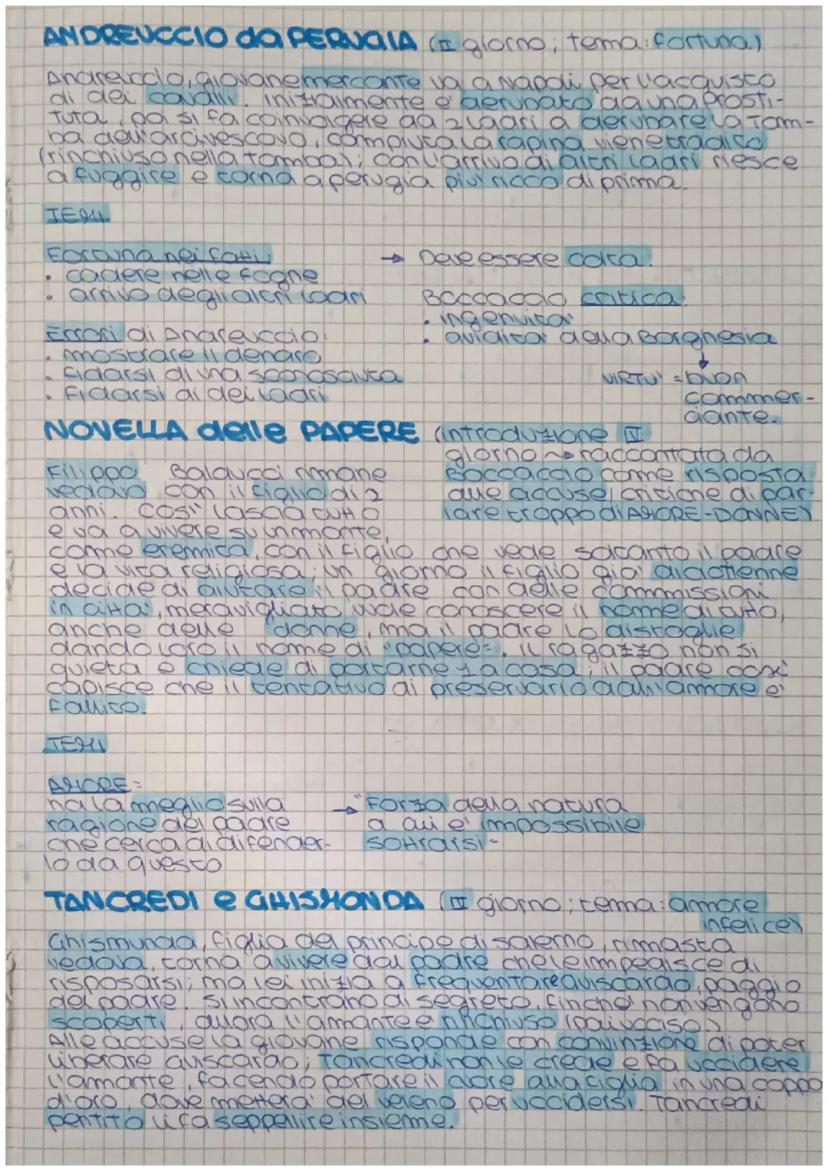 ANDREUCCIO da PERUGIA (II giorno; tema: fortuna)
Andreuccio, giovane mercante va a Napoli per l'acquisto
di dei cavalli. Inizialmente è derubato da una prosti-
tuta, poi si fa coinvolgere da 2 ladri a derubare la tom-
ba dell'arcivescovo, compiuta la rapina viene tradito
(rinchiuso nella tomba); con l'arrivo di altri ladri riesce
a fuggire e torna a perugia più ricco di prima.
TEMI
Fortuna nei fatti → Deve essere colta.
• cadere nelle fogne
• arrivo degli altri ladri Boccaccio critica:
• ingenuità
Errori di Andreuccio: • avidità della Borghesia
• mostrare il denaro
• fidarsi di una sconosciuta VIRTU' = buon
• fidarsi di dei ladri commer-
ciante.
NOVELLA delle PAPERE (introduzione IV
giorno ~> raccontata da
Filippo Balducci rimane Boccaccio come risposta
vedovo con il figlio di 2 alle accuse/critiche di par-
anni. così lascia tutto lare troppo di AMORE-DONNE)
e va a vivere su un monte,
come eremita, con il figlio che vede soltanto il padre
e la vita religiosa; un giorno il figlio già diciottenne
decide di aiutare il padre con delle commissioni
in città, meravigliato vuole conoscere il nome di tutto,
anche delle donne, ma il padre lo distoglie
dando loro il nome di "papere". Il ragazzo non si
quieta e chiede di portarne 1 a casa; il padre così
capisce che il tentativo di preservarlo dall'amore è
fallito.
TEMI
AMORE =
ha la meglio sulla → "Forza della natura
ragione del padre a cui è impossibile
che cerca di difender- sottrarsi"
lo da questo
TANCREDI e GHISMONDA (IV giorno; tema: amore
infelice)
Ghismunda, figlia del principe di Salerno, rimasta
vedova, torna a vivere dal padre che le impedisce di
risposarsi; ma lei inizia a frequentare Guiscardo, paggio
del padre. si incontrano di segreto, finché non vengono
scoperti, allora l'amante è rinchiuso (poi ucciso).
Alle accuse la giovane risponde con convinzione di poter
liberare Guiscardo; Tancredi non le crede e fa uccidere
l'amante, facendo portare il cuore alla figlia in una coppa
d'oro, dove metterà del veleno per uccidersi. Tancredi
pentito li fa seppellire insieme.